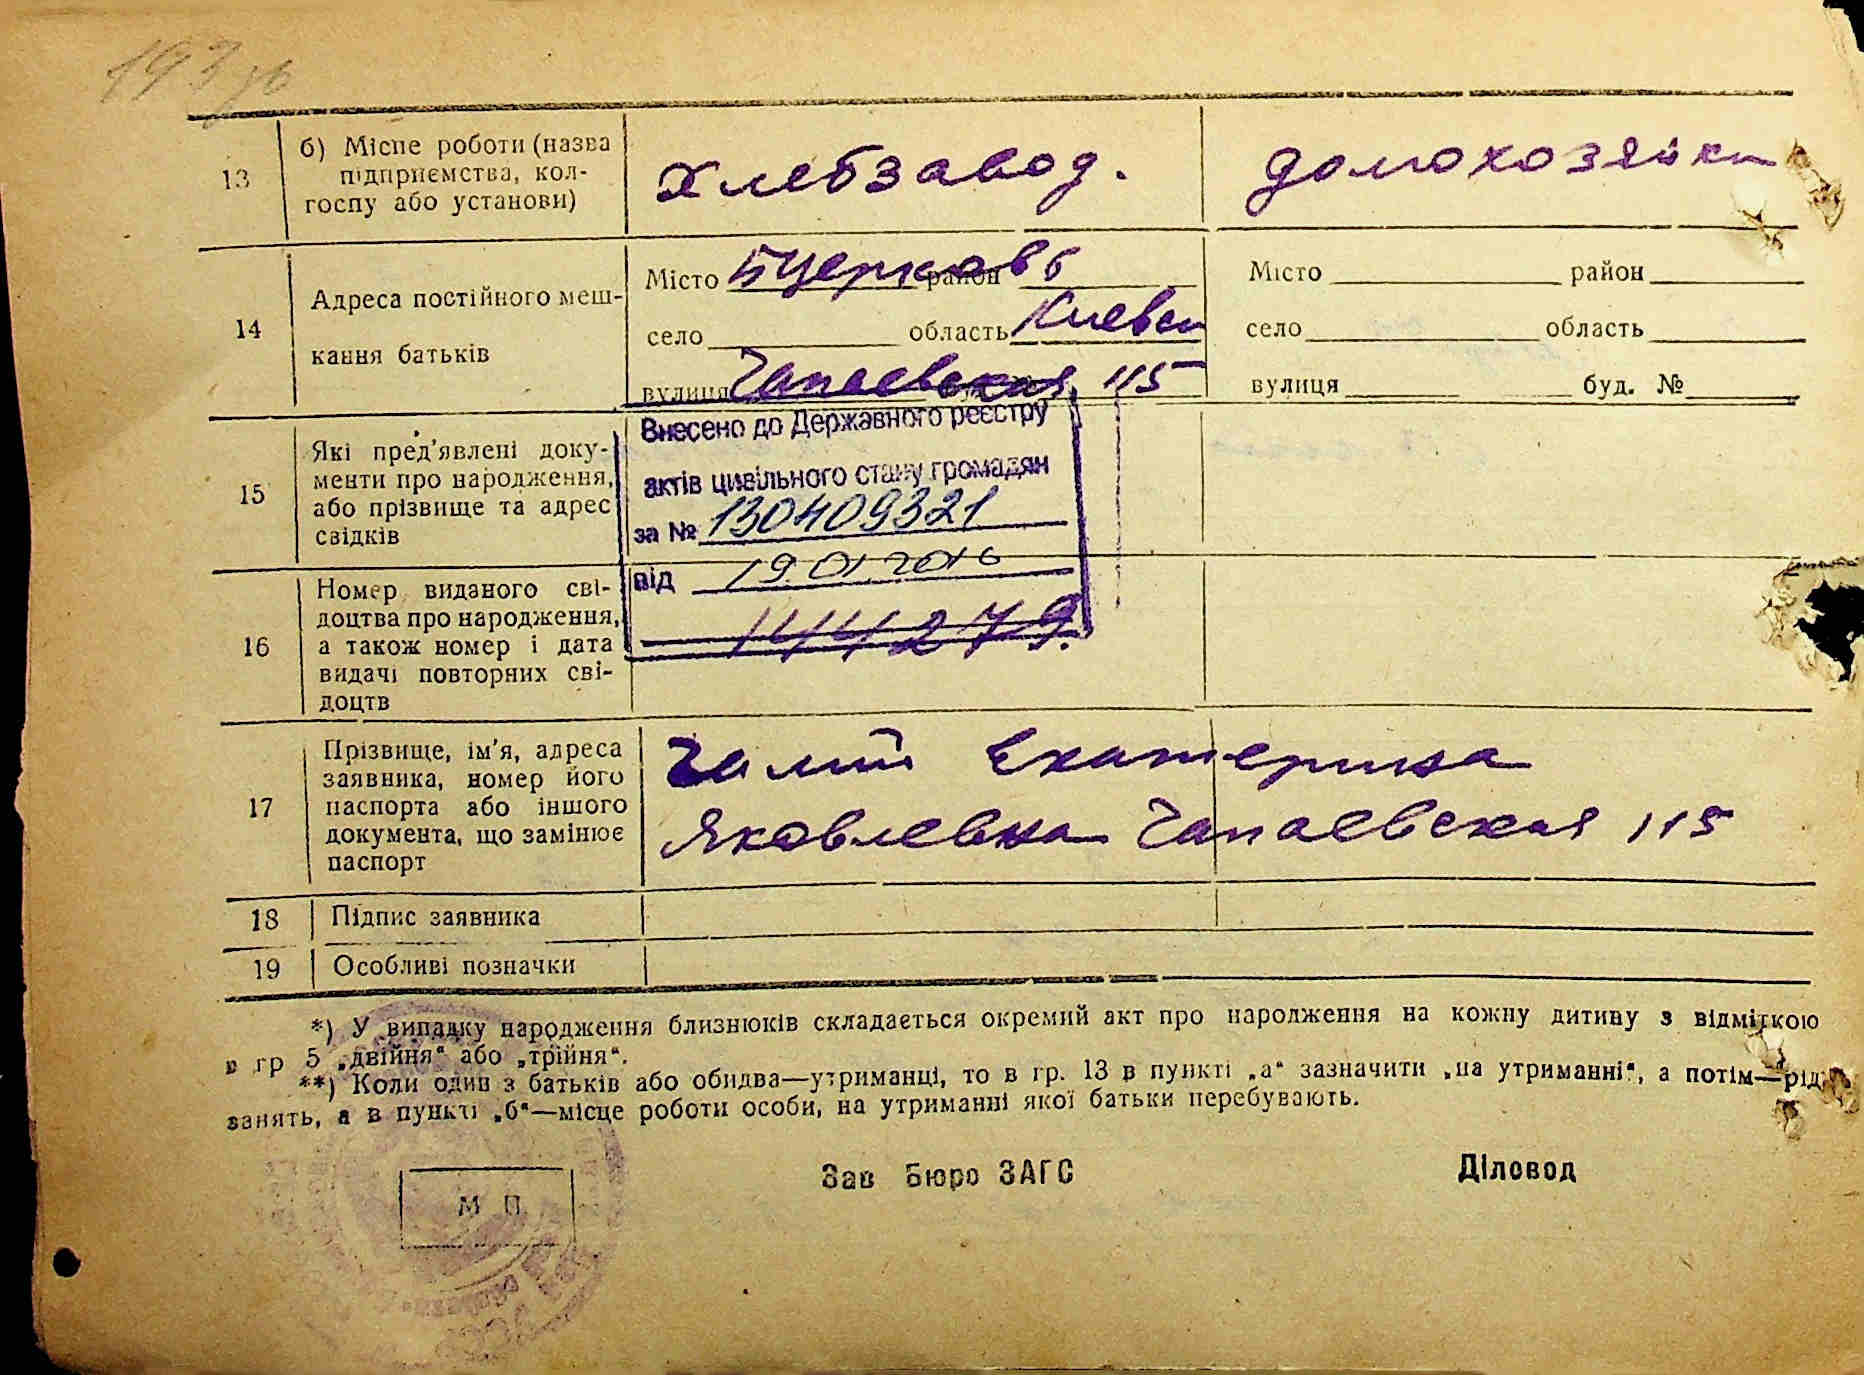 193
13
б) Місце роботи (назва
підприємства, кол-
госпу або установи)
Хлебзавод.
домохозяйка
14
Адреса постійного меш-
кання батьків
Місто БЦерковь район
село область Киевск
вулиця Чапаевская 115
Місто район
село область
вулиця буд. №
15
Які пред'явлені доку-
менти про народження,
або прізвище та адрес
свідків
Внесено до Державного реєстру
актів цивільного стану громадян
за № 130409321
від 19.01.2016
16
Номер виданого сві-
доцтва про народження,
а також номер і дата
видачі повторних сві-
доцтв
144279.
17
Прізвище, ім'я, адреса
заявника, номер його
паспорта або іншого
документа, що замінює
паспорт
Екатерина
Яковлевна Чапаевская 115
18
Підпис заявника
19
Особливі позначки
*) У випадку народження близнюків складається окремий акт про народження на кожну дитину з відміткою
в гр 5 „двійня“ або „трійня“.
**) Коли один з батьків або обидва—утриманці, то в гр. 13 в пункті „а“ зазначити „на утриманні“, а потім—рід
занять, а в пункті „б“—місце роботи особи, на утриманні якої батьки перебувають.
М П
Зав Бюро ЗАГС
Діловод